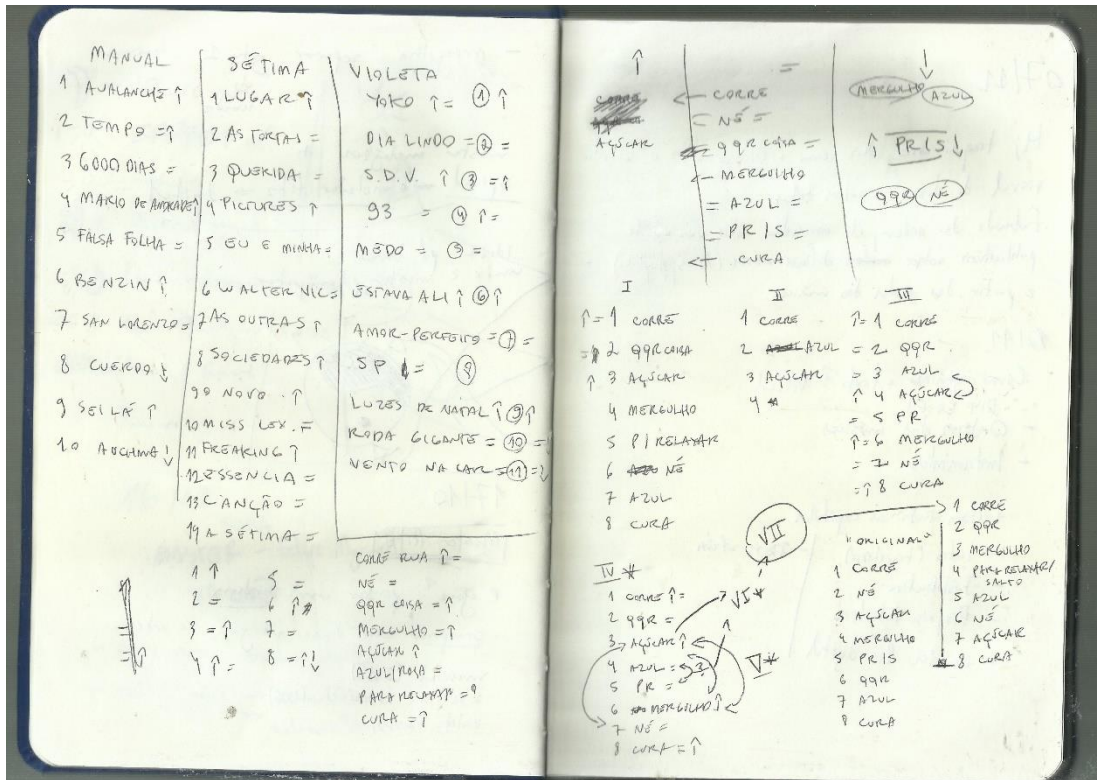 MANUAL
1 AVALANCHE ↑
2 TEMPO =↑
3 6000 DIAS =
4 MARIO DE ANDRADE ↑
5 FALSA FOLHA =
6 BENZIN ↑
7 SAN LORENZO =
8 CUERDO ↓
9 SEI LÁ ↑
10 AUCHMA ↓
SÉTIMA
1 LUGAR ↑
2 AS TORTAS =
3 QUERIDA =
4 PICTURES ↑
5 EU E MINHA =
6 WALTER NIC =
7 AS OUTRAS ↑
8 SOCIEDADES ↑
9 O NOVO . ↑
10 MISS LEX. =
11 FREAKING ↑
12 ESSENCIA =
13 CANÇÃO =
14 A SÉTIMA =
VIOLETA
YOKO ↑= ① ↑
DIA LINDO = ② =
S.D.V. ↑ ③ =↑
93 = ④ ↑=
MEDO = ⑤ =
ESTAVA ALI ↑ ⑥ ↑
AMOR-PERFEITO = ⑦ =
SP = ⑧
LUZES DE NATAL ↑ ⑨ ↑
RODA GIGANTE = ⑩ =
VENTO NA CAR = ⑪ =↓
1 ↑
2 =
3 = ↑
4 ↑ =
5 =
6 ↑
7 =
8 = ↑↓
CORRE RUA ↑=
NÉ =
QQR COISA = ↑
MERGULHO = ↑
AÇÚCAR ↑
AZUL/ROSA =
PARA RELAXAR =
CURA = ↑
↑
AÇÚCAR
=
← CORRE
← NÉ =
QQR COISA =
← MERGULHO
= AZUL =
= PR/S =
← CURA
↓
MERGULHO AZUL
↑ PR/S ↓
QQR NÉ
I
↑= 1 CORRE
= 2 QQR COISA
↑ 3 AÇÚCAR
4 MERGULHO
5 P/ RELAXAR
6 NÉ
7 AZUL
8 CURA
II
1 CORRE
2 AZUL
3 AÇÚCAR
4
III
↑= 1 CORRE
= 2 QQR
= 3 AZUL
↑ 4 AÇÚCAR
= 5 PR
↑= 6 MERGULHO
= 7 NÉ
=↑ 8 CURA
IV *
1 CORRE ↑=
2 QQR =
3 AÇÚCAR ↑
4 AZUL =
5 PR =
6 MERGULHO ↑
7 NÉ =
8 CURA = ↑
V*
VI*
VII
"ORIGINAL"
1 CORRE
2 NÉ
3 AÇÚCAR
4 MERGULHO
5 PR/S
6 QQR
7 AZUL
8 CURA
1 CORRE
2 QQR
3 MERGULHO
4 PARA RELAXAR/
SALTO
5 AZUL
6 NÉ
7 AÇÚCAR
8 CURA